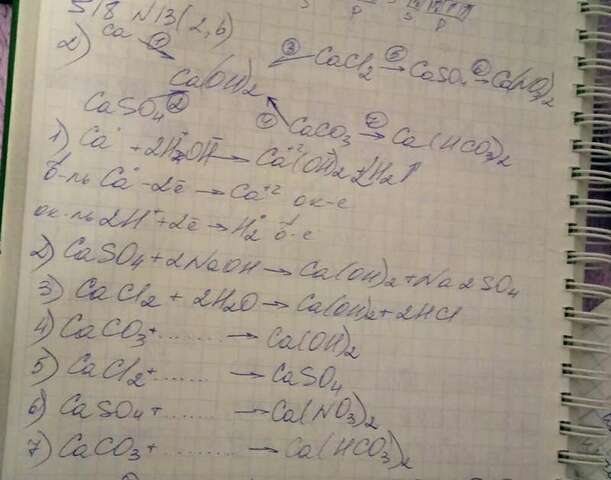 N13(2,б)
2) Ca ① ③ CaCl2 ⑤→ CaSO4 ⑥→ Ca(NO3)2
Ca(OH)2
CaSO4 ② ④ CaCO3 ⑦→ Ca(HCO3)2
1) Ca + 2HOH → Ca+2(OH)2 + H2↑
в-ль Ca - 2ē → Ca+2 ок-е
ок-ль 2H+ + 2ē → H2 в-е
2) CaSO4 + 2NaOH → Ca(OH)2 + Na2SO4
3) CaCl2 + 2H2O → Ca(OH)2 + 2HCl
4) CaCO3 + ........ → Ca(OH)2
5) CaCl2 + ...... → CaSO4
6) CaSO4 + ....... → Ca(NO3)2
7) CaCO3 + ....... → Ca(HCO3)2